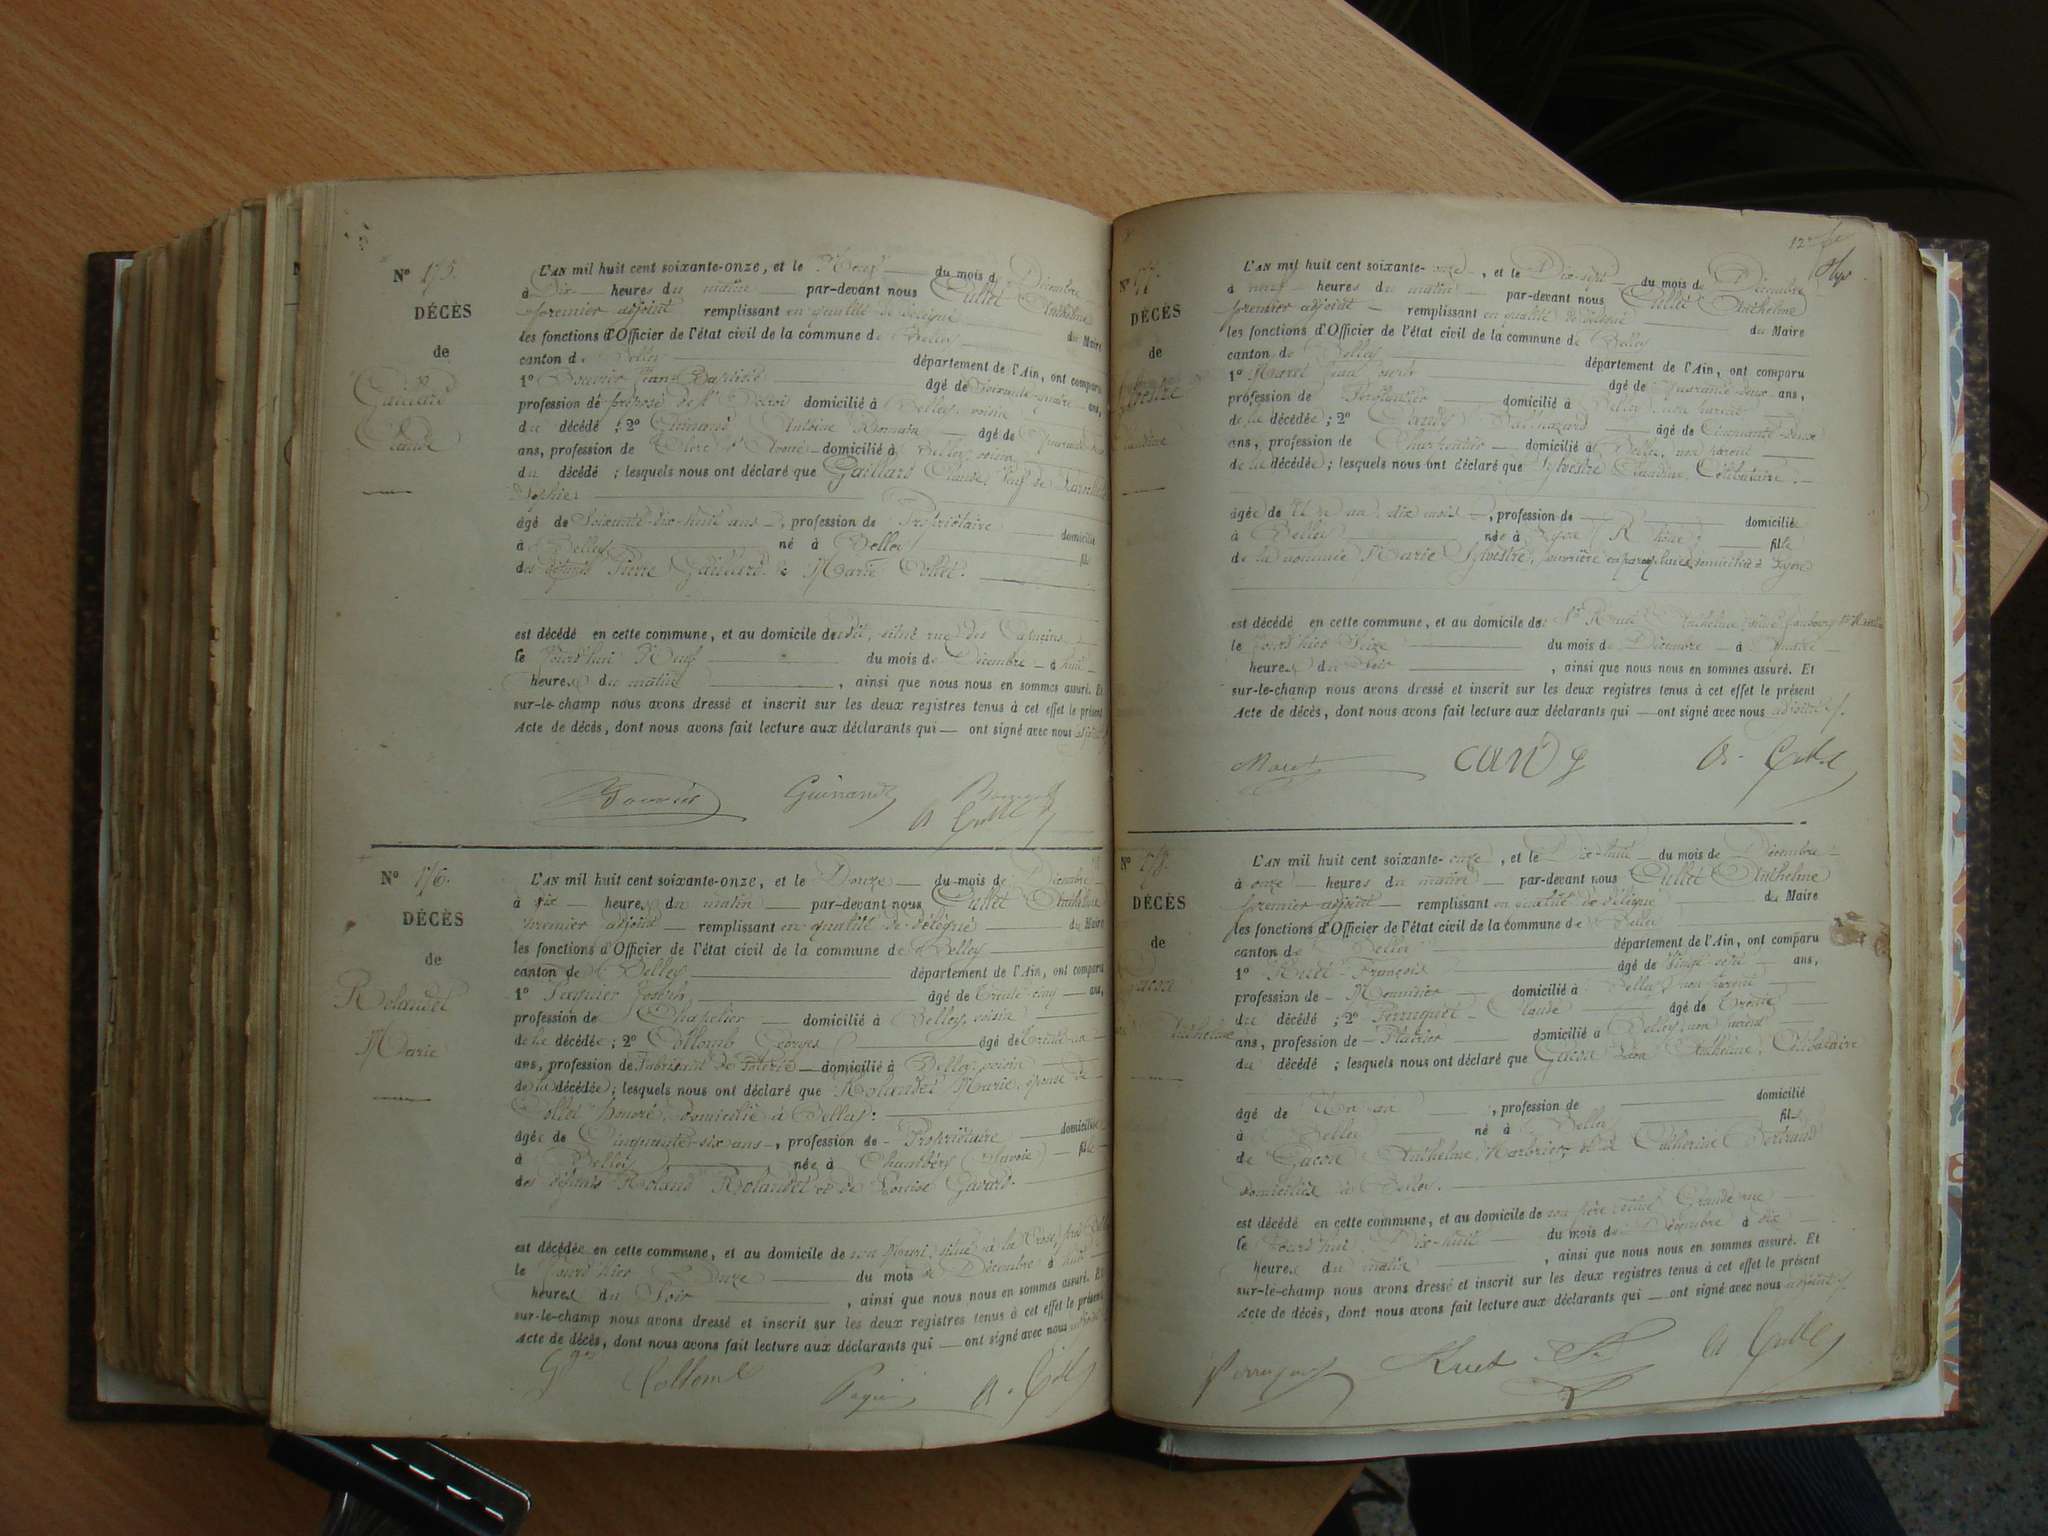 N° 175.
DÉCÈS
de
Gaillard
Claude
L'AN mil huit cent soixante-onze, et le Neuf du mois de Décembre
à Dix heures du matin par-devant nous Cullet Anthelme
premier adjoint remplissant en qualité de délégué du Maire
les fonctions d'Officier de l'état civil de la commune de Belley
canton de Belley département de l'Ain, ont comparu
1° Bouvier Jean Baptiste âgé de Soixante ans,
profession de préposé de l'Octroi domicilié à Belley, voisin
du décédé ; 2° Antoine Romain âgé de
ans, profession de Clerc d'Avoué domicilié à Belley, voisin
du décédé ; lesquels nous ont déclaré que Gaillard Claude, Veuf de
Sophie
âgé de Soixante-dix-huit ans, profession de Propriétaire domicilié
à Belley né à Belley fils
des défunts Pierre Gaillard & Marie Collet.
est décédé en cette commune, et au domicile du dit, situé rue des Capucins
le Jourd'hui Neuf du mois de Décembre à huit
heures du matin, ainsi que nous nous en sommes assuré. Et
sur-le-champ nous avons dressé et inscrit sur les deux registres tenus à cet effet le présent
Acte de décès, dont nous avons fait lecture aux déclarants qui — ont signé avec nous adjoint
Bouvier Guinand A Cullet
N° 176.
DÉCÈS
de
Rolandet
Marie
L'AN mil huit cent soixante-onze, et le Douze du mois de Décembre
à dix heures du matin par-devant nous Cullet Anthelme
premier adjoint remplissant en qualité de délégué du Maire
les fonctions d'Officier de l'état civil de la commune de Belley
canton de Belley département de l'Ain, ont comparu
1° Joseph âgé de Trente cinq ans,
profession de Chapelier domicilié à Belley, voisin
de la décédée ; 2° Collomb Georges âgé de
ans, profession de Fabricant de Poterie domicilié à Belley, voisin
de la décédée ; lesquels nous ont déclaré que Rolandet Marie, épouse de
Collet honoré, domicilié à Belley.
âgée de Cinquante-six ans, profession de Propriétaire domiciliée
à Belley née à Chambéry (Savoie) fille
des défunts Roland Rolandet et de
est décédée en cette commune, et au domicile de son Mari, situé à la Crose, près Belley
le Jourd'hier Douze du mois de Décembre à huit
heures du Soir, ainsi que nous nous en sommes assuré. Et
sur-le-champ nous avons dressé et inscrit sur les deux registres tenus à cet effet le présent
Acte de décès, dont nous avons fait lecture aux déclarants qui — ont signé avec nous adjoint
Collomb A. Cullet
N° 177.
DÉCÈS
de
Claudine
L'AN mil huit cent soixante-onze, et le Dix-sept du mois de Décembre
à neuf heures du matin par-devant nous Cullet Anthelme
premier adjoint remplissant en qualité de délégué du Maire
les fonctions d'Officier de l'état civil de la commune de Belley
canton de Belley département de l'Ain, ont comparu
1° Maret âgé de Quarante-deux ans,
profession de Ferblantier domicilié à Belley, non parent
de la décédée ; 2° Candy Balthazard âgé de Cinquante-deux
ans, profession de Charpentier domicilié à Belley, non parent
de la décédée ; lesquels nous ont déclaré que Sylvestre Claudine, Célibataire.
âgée de Un an, dix mois, profession de domiciliée
à Belley née à Lyon (Rhône) fille
de la nommée Marie Sylvestre, ouvrière en parapluies, domiciliée à Lyon
est décédé en cette commune, et au domicile de Anthelme,
le Jourd'hier Seize du mois de Décembre à quatre
heures du Soir, ainsi que nous nous en sommes assuré. Et
sur-le-champ nous avons dressé et inscrit sur les deux registres tenus à cet effet le présent
Acte de décès, dont nous avons fait lecture aux déclarants qui — ont signé avec nous adjoint
Maret CANDY A. Cullet
N° 178.
DÉCÈS
de
Gacon
Anthelme
L'AN mil huit cent soixante-onze, et le Dix-huit du mois de Décembre
à onze heures du matin par-devant nous Cullet Anthelme
premier adjoint remplissant en qualité de délégué du Maire
les fonctions d'Officier de l'état civil de la commune de Belley
canton de Belley département de l'Ain, ont comparu
1° Ruet François âgé de Vingt-sept ans,
profession de Menuisier domicilié à Belley, non parent
du décédé ; 2° Perruquet Claude âgé de Trente
ans, profession de Plâtrier domicilié à Belley, non parent
du décédé ; lesquels nous ont déclaré que Gacon Anthelme, Célibataire
âgé de Un an, profession de domicilié
à Belley né à Belley fils
de Gacon Anthelme, Marbrier, & de Catherine Bertrand
domiciliés à Belley.
est décédé en cette commune, et au domicile de son père, situé Grande rue
le Jourd'hui Dix-huit du mois de Décembre à dix
heures du matin, ainsi que nous nous en sommes assuré. Et
sur-le-champ nous avons dressé et inscrit sur les deux registres tenus à cet effet le présent
Acte de décès, dont nous avons fait lecture aux déclarants qui — ont signé avec nous adjoint
Perruquet Ruet A Cullet